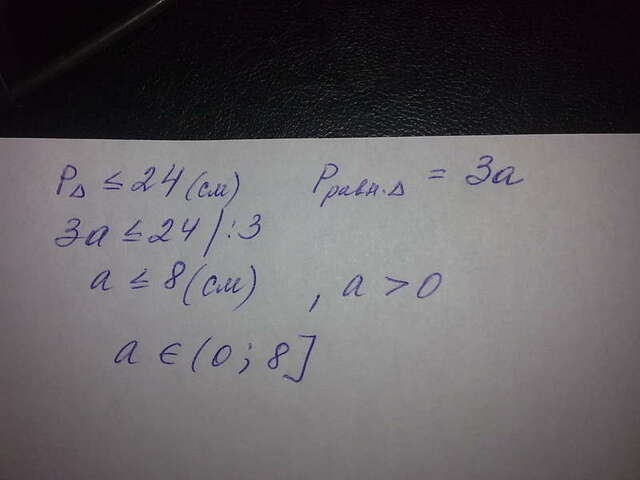 P△ ≤ 24 (см) Pравн.△ = 3a
3a ≤ 24 | : 3
a ≤ 8 (см) , a > 0
a ∈ (0; 8]